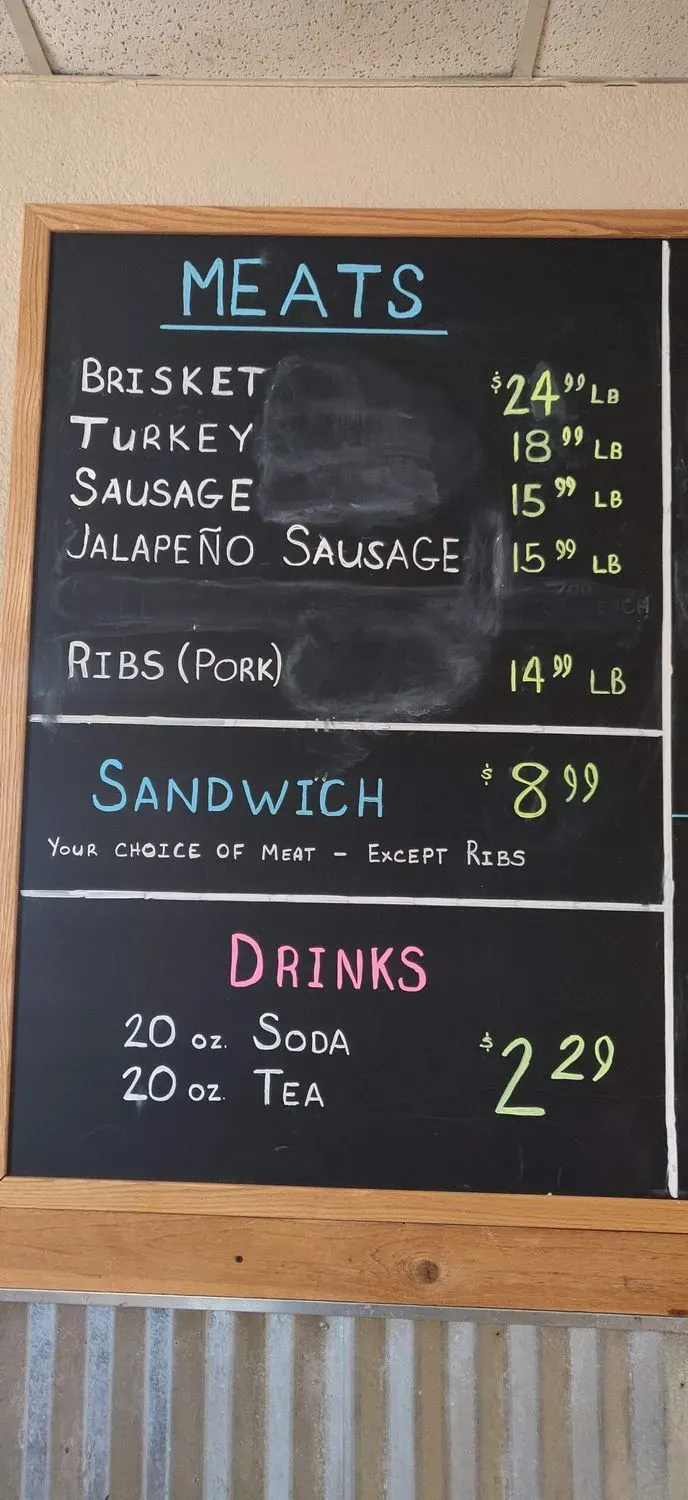 MEATS
BRISKET $24.99 LB
TURKEY 18.99 LB
SAUSAGE 15.99 LB
JALAPEÑO SAUSAGE 15.99 LB
RIBS (PORK) 14.99 LB
SANDWICH $8.99
YOUR CHOICE OF MEAT - EXCEPT RIBS
DRINKS
20 OZ. SODA
20 OZ. TEA
$2.29